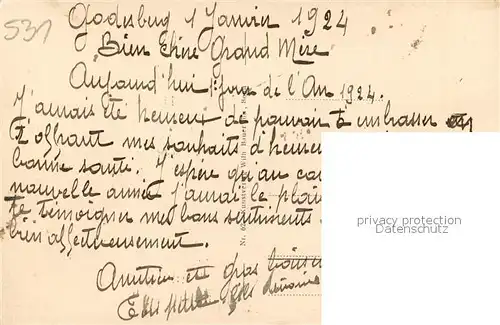 531
Godesberg 1 Janvier 1924
Bien Chère Grand Mère
Aujourd'hui 1 jour de l'An 1924.
J'aurais été heureux de pouvoir t'embrasser et
t'offrant mes souhaits d'heureu
bonne santé. J'espère qu'au co
nouvelle année j'aurai le plais
te témoigner mes bons sentiments
bien affectueusement.
Amitiés et gros baisers
privacy protection
www.oldthing.de